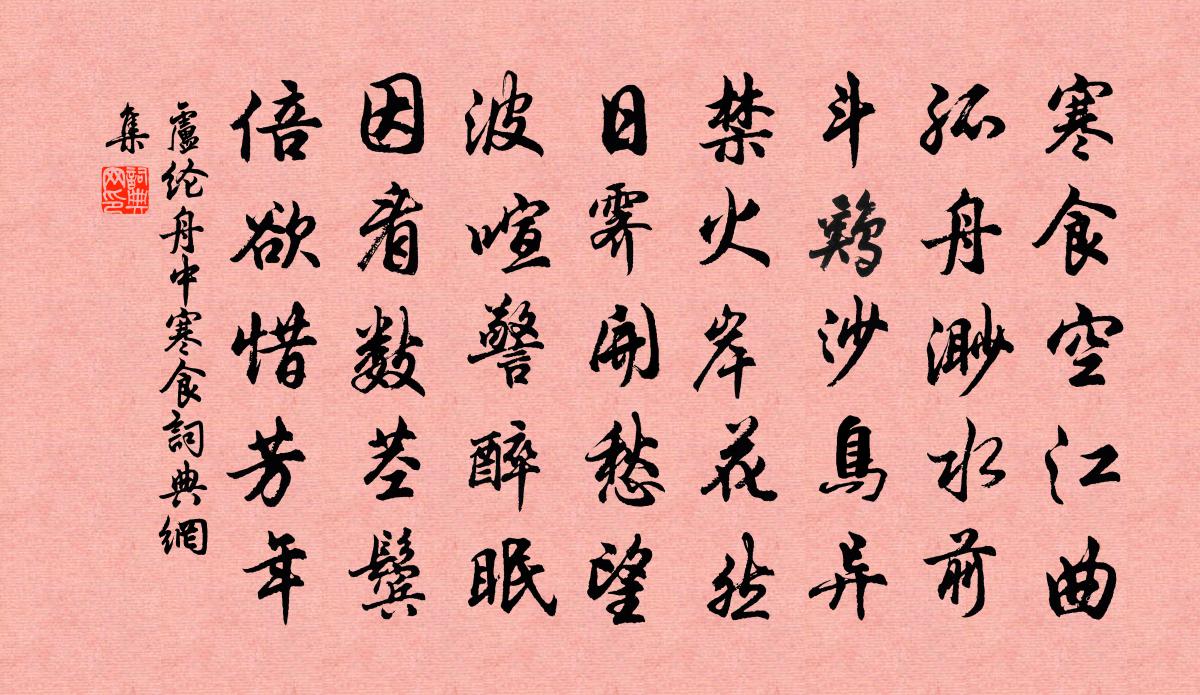 寒食空江曲
孤舟渺水前
斗鷄沙鳥异
禁火岸花然
日霽開愁望
波喧警醉眠
因看數莖鬢
倍欲惜芳年
盧纶舟中寒食詞典網
集
詞典网印